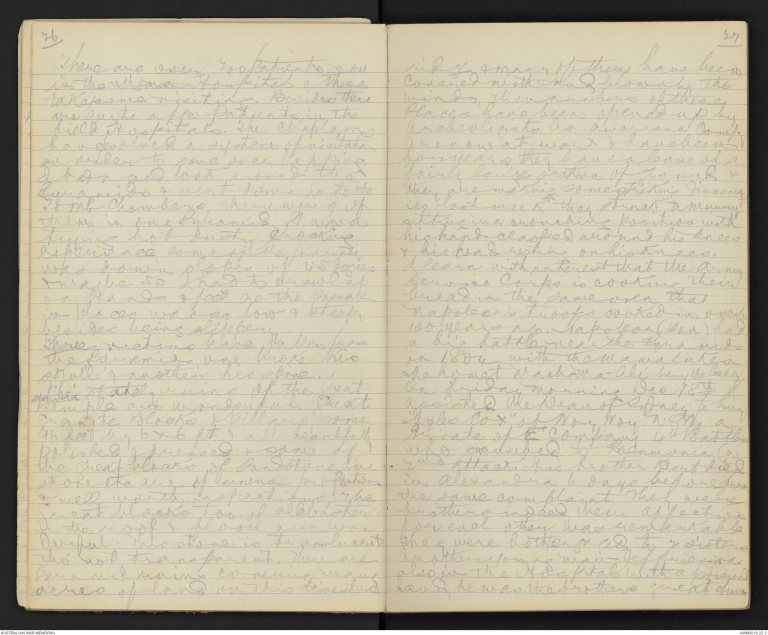 26
There are over 200 patients now
in the Mena Hospital & these
take some visiting. Besides there
are quite a few Patients in the
field Hospitals. The Chaplains
have evolved a system of visitation
in order to save over lapping.
I had a good look around the
Pyramids & went down into the
Tomb Chambers there were 9 of
them in one Pyramid. It was a
trying hot dusty choking
experience some of the journey
was down slopes of 45 degrees
& maybe I had to draw up
on hands & feet as the passages
in places was so low & steep,
besides being slippery.
Three victims have fallen from
the pyramids one broke his
skull & another his spine.
The stately ruins of the
temple are wonderful great
Granite Blocks & Pillars some
ft by 6 x 6 ft all beautifully
polished & dressed & some of
the great blocks of sandstone
stone are of immense proportions
& well worth inspecting. The
great blocks too of Alabaster
in the roof & floor are won
derful. This stone is translucent
tho not transparent. There are
ruins covering many
acres of land on this
27
ridge & many of these have been
covered with sand blown by the
winds, then numbers of these
places have been opened up by
Archeologists. An American
are now at work & have been
for years they have a lease of a
fairly large section of ground &
they are making some striking discover
ies last week they struck a mummy
sitting in a crouching position with
his hands clasped around his knees
& his head resting on his knees.
I learn with interest that the Army
Service Corps is cooking their
bread in the same oven that
Napoleon's troops cooked in over
100 years ago. Napoleon had
a big battle near the Pyramids
in with the Mamalukes
Mahomet Ali being the leader
On Friday morning Dec 18th I
assisted the Dean of Sydney to bury
Cox of Woy Woy N.S.W. a
Private of E Company 4 Battn
who succumbed to Pneumonia (a
2nd attack. His brother Bert died
in Alexandra 6 days before from
the same complaint. They were
brothers indeed their affection
for each other was remarkable
They were both engaged to 2 sisters
Another young man
also in the Hospital with a poisoned
hand, he was the brothers great chum
AUSTRALIAN WAR MEMORIAL